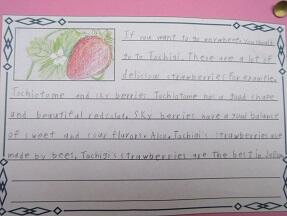 If you want to go anywhere, you should
go to Tochigi. There are a lot of
delicious strawberries for example,
Tochiotome and sky berries. Tochiotome has a good shape
and beautiful red color. Sky berries have a good balance
of sweet and sour flavors. Also, Tochigi's strawberries are
made by bees. Tochigi's strawberries are the best in Japan.